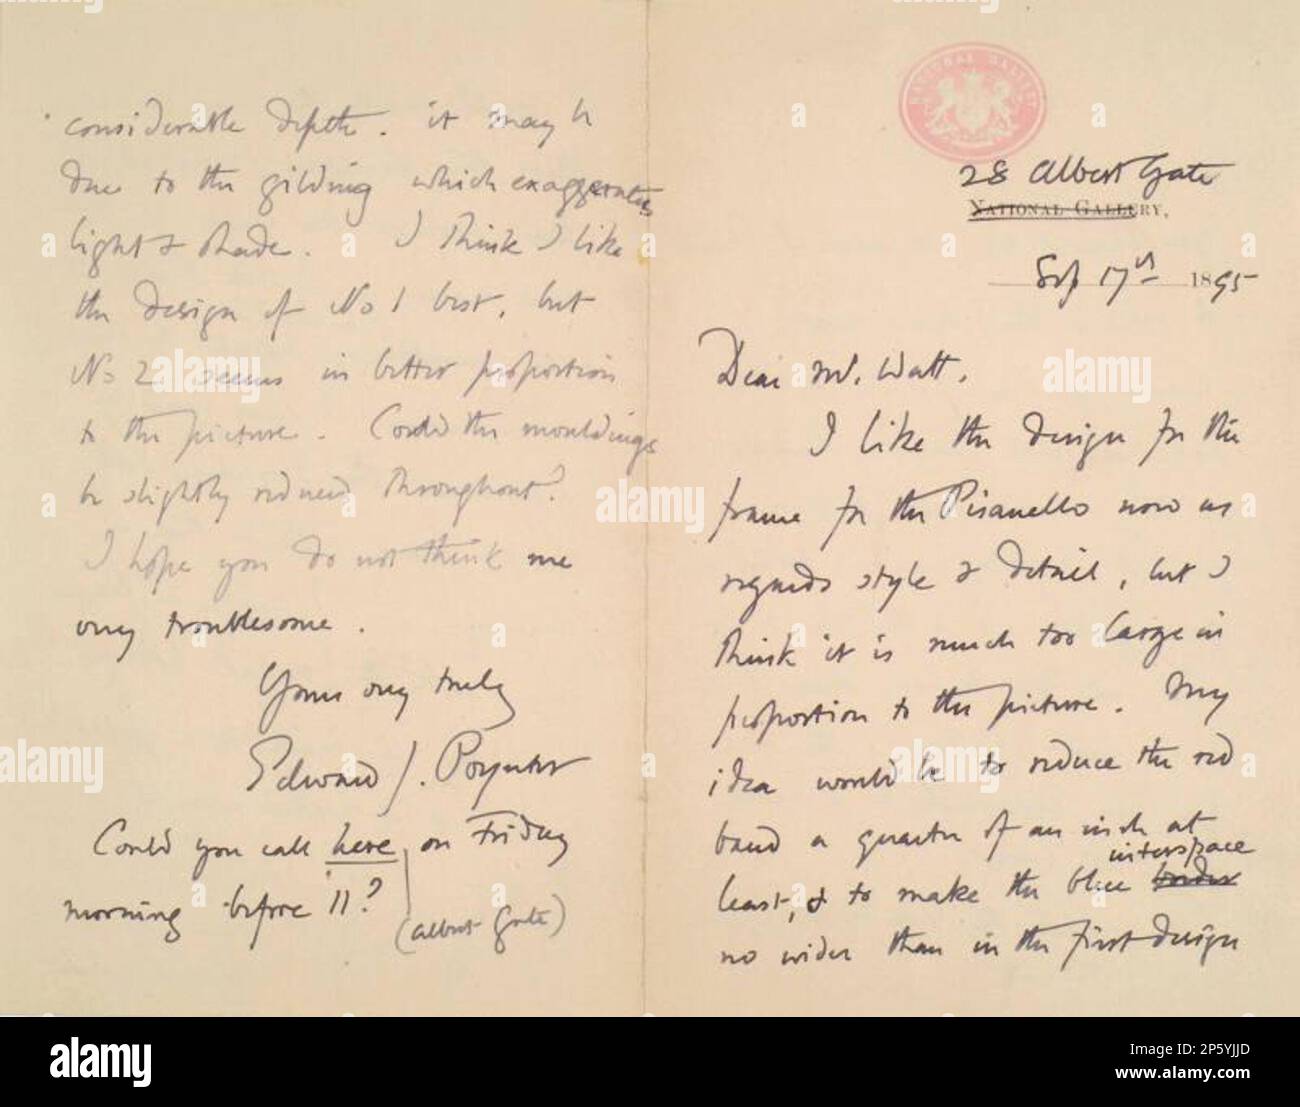 NATIONAL GALLERY
28 Albert Gate
NATIONAL GALLERY,
Sep 17th 1895
Dear Mr. Watt,
I like the design for the
frame for the Pisanello now as
regards style & detail, but I
think it is much too large in
proportion to the picture. My
idea would be to reduce the red
band a quarter of an inch at
interspace
least, & to make the blue border
no wider than in the first design
considerable depth. it may be
due to the gilding which exaggerates
light & shade. I think I like
the design of No 1 best, but
No 2 seems in better proportion
to the picture. Could the mouldings
be slightly reduced throughout?
I hope you do not think me
very troublesome.
Yours very truly
Edward J. Poynter
Could you call here on Friday
morning before 11?
(Albert Gate)
alamy
Image ID: 2P5YJJD
www.alamy.com